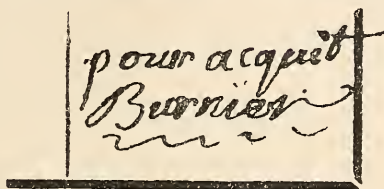 pour acquit
Burnier